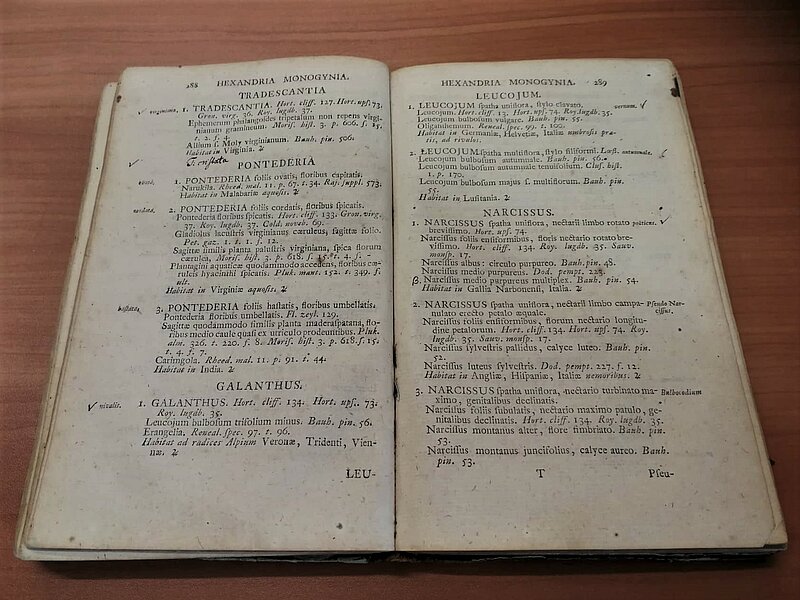 288 HEXANDRIA MONOGYNIA.
TRADESCANTIA
virginiana. 1. TRADESCANTIA. Hort. cliff. 127. Hort. upſ. 73.
Gron. virg. 36. Roy. lugdb. 37.
Ephemerum phalangoides tripetalum non repens virgi-
nianum gramineum. Moriſ. hiſt. 3. p. 606. ſ. 15.
t. 2. f. 4.
Allium ſ. Moly virginianum. Bauh. pin. 506.
Habitat in Virginia. ♃
PONTEDERIA
ovata. 1. PONTEDERIA foliis ovatis, floribus capitatis.
Narukila. Rheed. mal. 11. p. 67. t. 34. Raj. ſuppl. 573.
Habitat in Malabariæ aquoſis. ♃
cordata. 2. PONTEDERIA foliis cordatis, floribus ſpicatis.
Pontederia floribus ſpicatis. Hort. cliff. 133. Gron. virg.
37. Roy. lugdb. 37. Cold. noveb. 69.
Gladiolus lacuſtris virginianus cæruleus, ſagittæ folio.
Pet. gaz. 1. t. 1. f. 12.
Sagittæ ſimilis planta paluſtris virginiana, ſpica florum
cærulea. Moriſ. hiſt. 3. p. 618. ſ. 15. t. 4. f.
Plantagini aquaticæ quodammodo accedens, floribus cæ-
ruleis hyacinthi ſpicatis. Pluk. mant. 152. t. 349. f.
ult.
Habitat in Virginiæ aquoſis. ♃
haſtata. 3. PONTEDERIA foliis haſtatis, floribus umbellatis.
Pontederia floribus umbellatis. Fl. zeyl. 129.
Sagittæ quodammodo ſimilis planta maderaſpatana, flo-
ribus medio caule quaſi ex utriculo prodeuntibus. Pluk.
alm. 326. t. 220. f. 8. Moriſ. hiſt. 3. p. 618. ſ. 15.
t. 4. f. 7.
Carimgola. Rheed. mal. 11. p. 91. t. 44.
Habitat in India. ♃
GALANTHUS.
nivalis. 1. GALANTHUS. Hort. cliff. 134. Hort. upſ. 73.
Roy. lugdb. 35.
Leucojum bulboſum trifolium minus. Bauh. pin. 56.
Erangelia. Reneal. ſpec. 97. t. 96.
Habitat ad radices Alpium Veronæ, Tridenti, Vien-
næ. ♃
LEU-
HEXANDRIA MONOGYNIA. 289
LEUCOJUM.
1. LEUCOJUM ſpatha uniflora, ſtylo clavato. vernum.
Leucojum. Hort. cliff. 13. Hort. upſ. 74. Roy. lugdb. 35.
Leucojum bulboſum vulgare. Bauh. pin. 55.
Oligianthemum. Reneal. ſpec. 99. t. 100.
Habitat in Germaniæ, Helvetiæ, Italiæ umbroſis pra-
tis, ad rivulos.
2. LEUCOJUM ſpatha multiflora, ſtylo filiformi. autumnale.
Leucojum bulboſum autumnale. Bauh. pin. 56.
Leucojum bulboſum autumnale tenuifolium. Cluſ. hiſt.
1. p. 170.
Leucojum bulboſum majus ſ. multiflorum. Bauh. pin.
55.
Habitat in Luſitania. ♃
NARCISSUS.
1. NARCISSUS ſpatha uniflora, nectarii limbo rotato poëticus.
breviſſimo. Hort. upſ. 74.
Narciſſus foliis enſiformibus, floris nectario rotato bre-
viſſimo. Hort. cliff. 134. Roy. lugdb. 35. Sauv.
monſp. 17.
Narciſſus albus: circulo purpureo. Bauh. pin. 48.
Narciſſus medio purpureus. Dod. pempt. 223.
β. Narciſſus medio purpureus multiplex. Bauh. pin. 54.
Habitat in Gallia Narbonenſi, Italia. ♃
2. NARCISSUS ſpatha uniflora, nectarii limbo campa- Pſeudo Nar-
nulato erecto petalo æquale. ciſſus.
Narciſſus foliis enſiformibus, florum nectario longitu-
dine petalorum. Hort. cliff. 134. Hort. upſ. 74. Roy.
lugdb. 35. Sauv. monſp. 17.
Narciſſus ſylveſtris pallidus, calyce luteo. Bauh. pin.
52.
Narciſſus luteus ſylveſtris. Dod. pempt. 227. f. 12.
Habitat in Angliæ, Hiſpaniæ, Italiæ nemoribus. ♃
3. NARCISSUS ſpatha uniflora, nectario turbinato ma- Bulbocodium
ximo, genitalibus declinatis.
Narciſſus foliis ſubulatis, nectario maximo patulo, ge-
nitalibus declinatis. Hort. cliff. 134. Roy. lugdb. 35.
Narciſſus montanus alter, flore fimbriato. Bauh. pin.
53.
Narciſſus montanus juncifolius, calyce aureo. Bauh.
pin. 53.
T Pſeu-